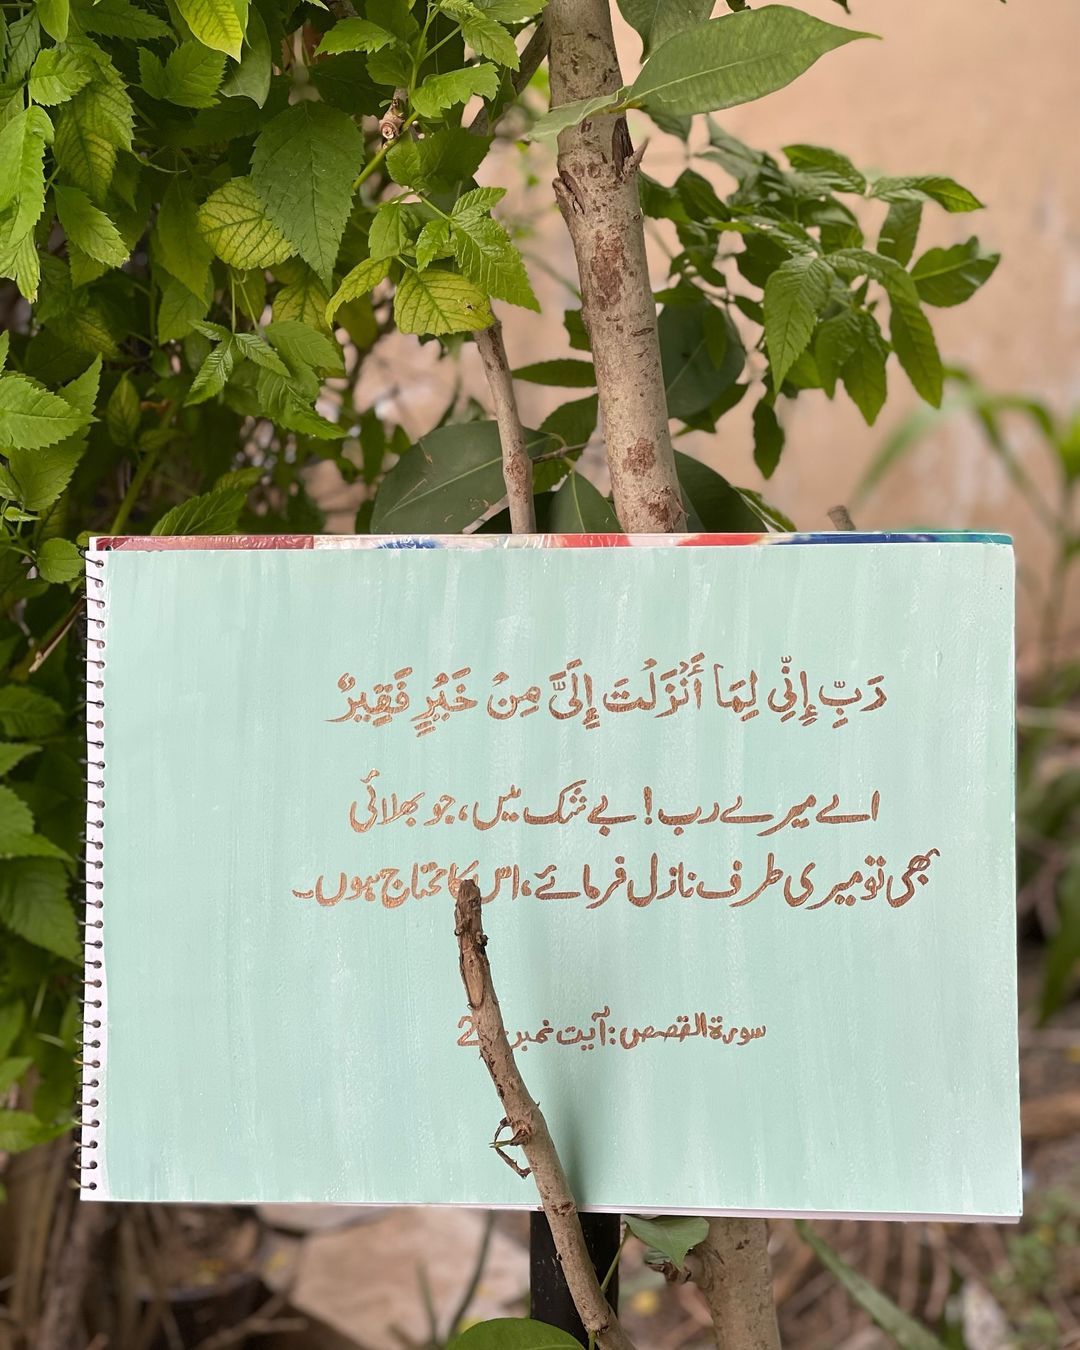 رَبِّ إِنِّي لِمَا أَنْزَلْتَ إِلَيَّ مِنْ خَيْرٍ فَقِيرٌ
اے میرے رب! بے شک میں، جو بھلائی
بھی تو میری طرف نازل فرمائے، اس کا محتاج ہوں۔
سورة القصص: آیت نمبر 2